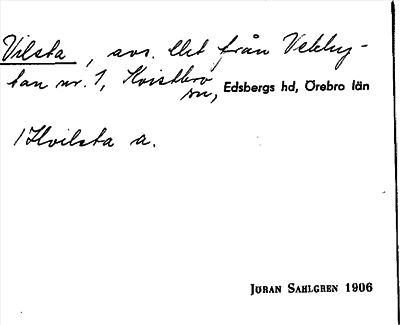 Vilsta, avs. litt från Vekhy-
tan nr. 1, Kvistbro
sn, Edsbergs hd, Örebro län
/Hvilsta a.
JÖRAN SAHLGREN 1906